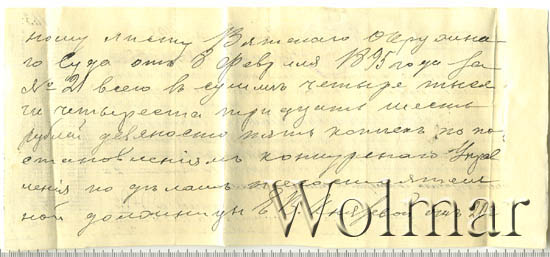 ному листу Вятскаго Окружна-
го Суда отъ 6 февраля 1895 года за
№ 21 всего въ суммѣ четыре тыся-
чи четыреста тридцать шесть
рублей девяносто пять копѣекъ по по-
становленіямъ конкурснаго Управ
ленія по дѣламъ несостоятель
ной должницы
Wolmar